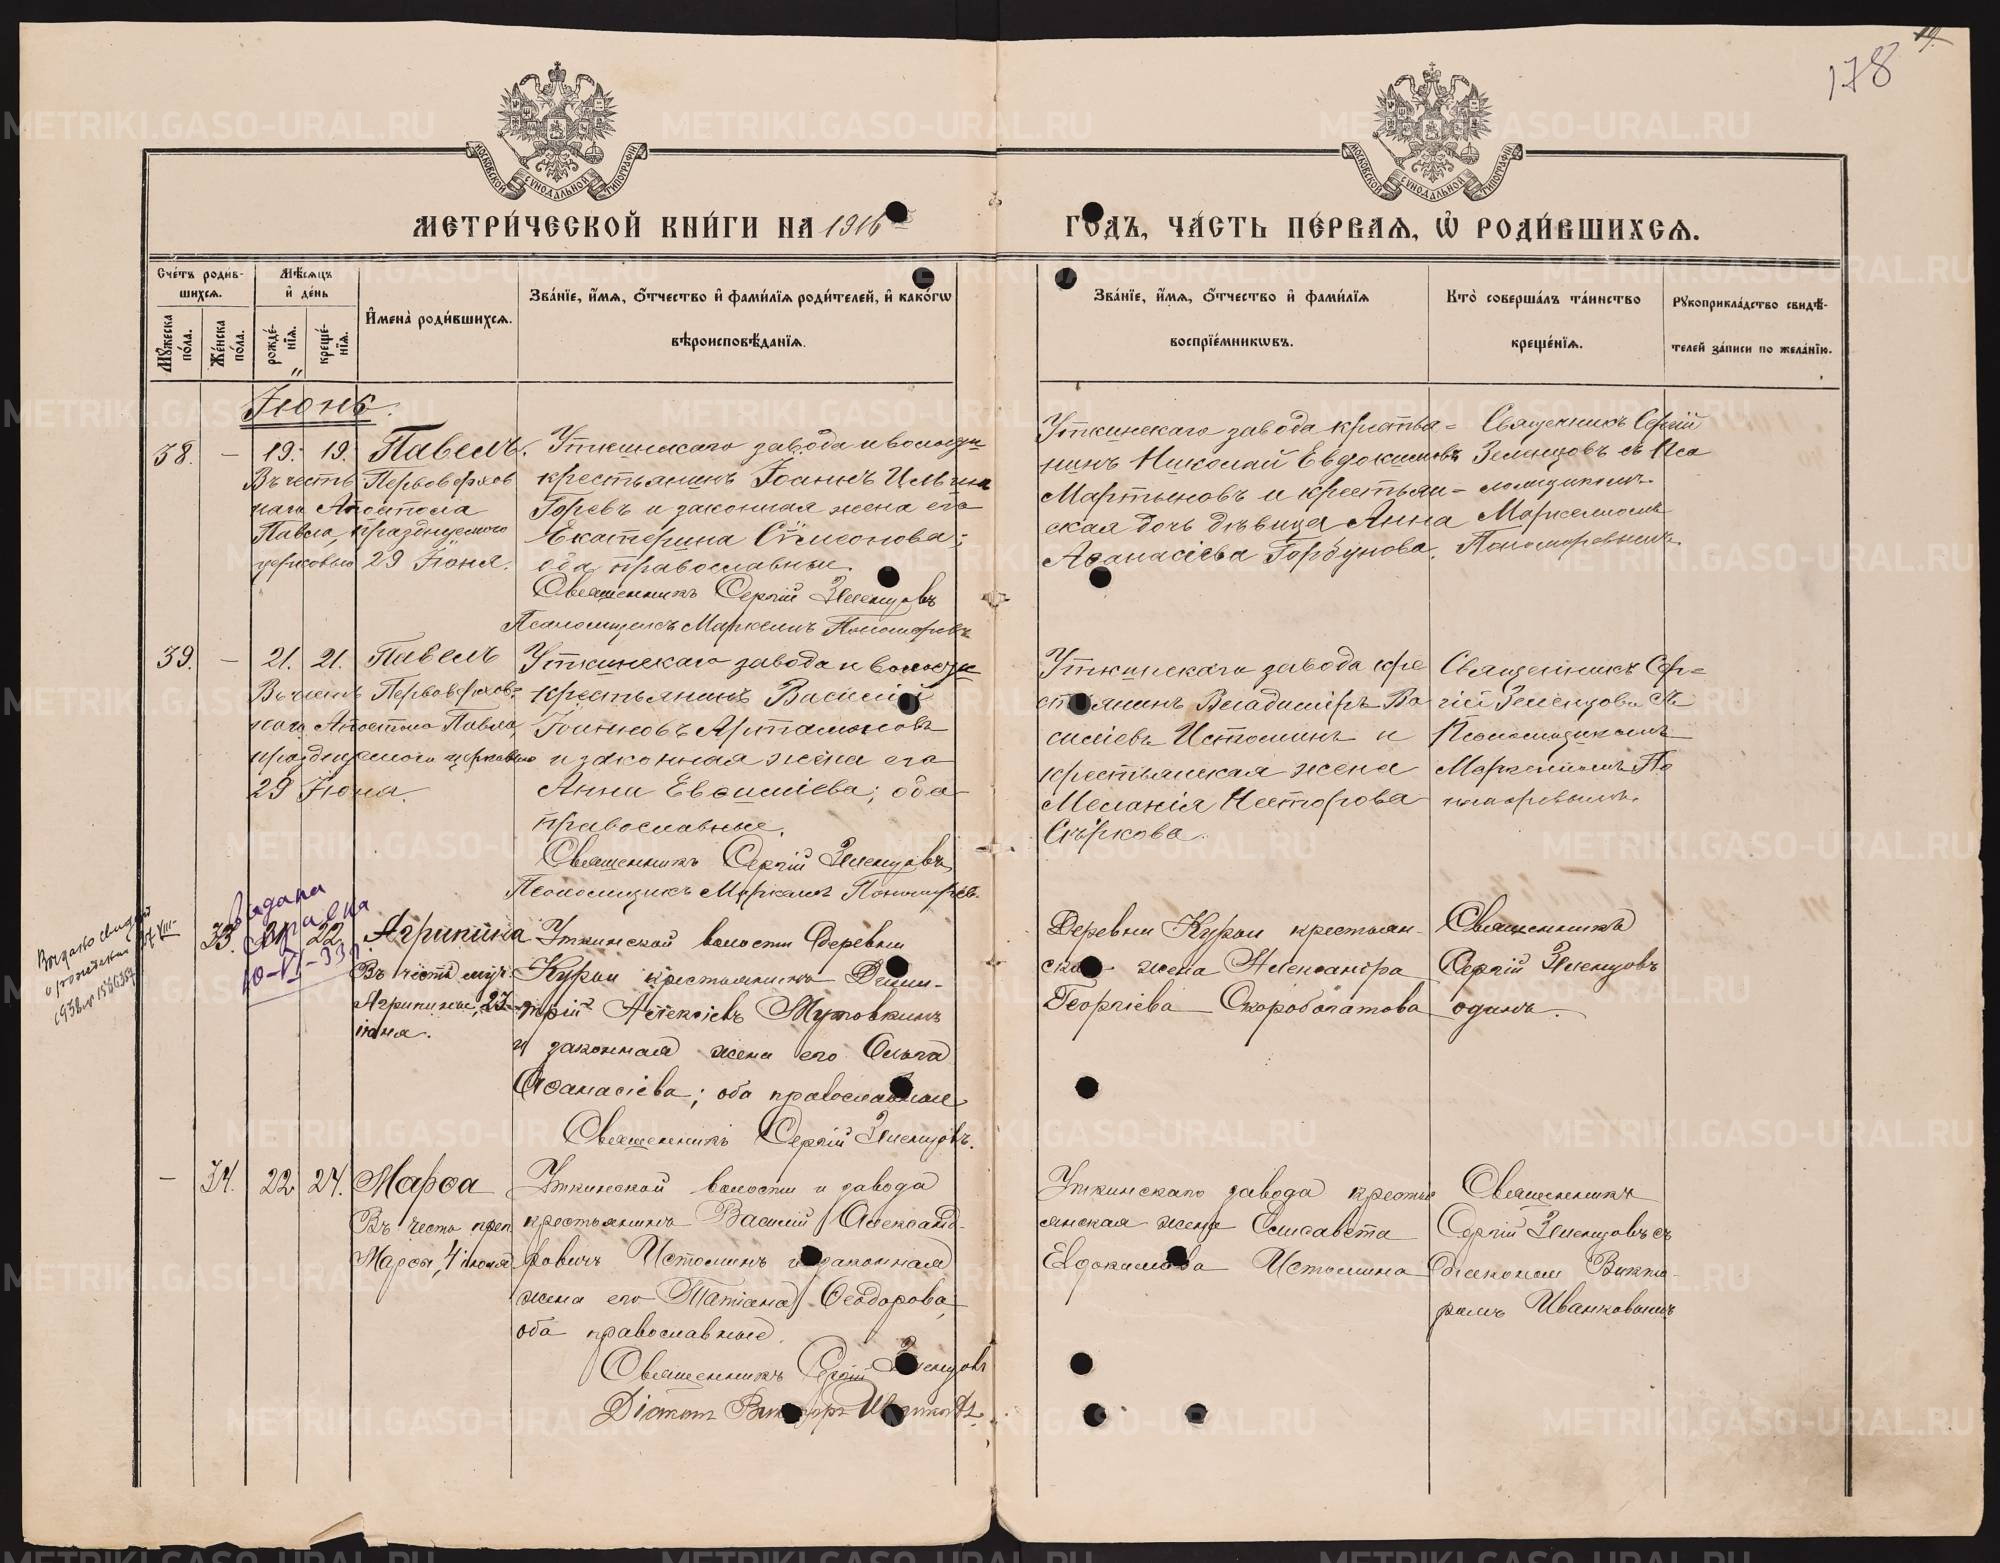 178
МОСКОВСКОЙ СѴНОДАЛЬНОЙ ТИПОГРАФІИ
МОСКОВСКОЙ СѴНОДАЛЬНОЙ ТИПОГРАФІИ
МЕТРИ́ЧЕСКОЙ КНИ́ГИ НА 1916
ГОДЪ, ЧА́СТЬ ПЕ́РВАЯ, Ѡ РОДИ́ВШИХСѦ.
Сче́тъ роди́в-
шихся.
Мꙋ́жеска по́ла.
Же́нска по́ла.
Мѣ́сяцъ
и де́нь
рожде́-
нїя.
креще́-
нїя.
И҆мена̀ роди́вшихся.
Зва́нїе, и҆́мя, ѻ҆́тчество и҆ фами́лїя роди́телей, и҆ како́гѡ
вѣроисповѣ́данїя.
Зва́нїе, и҆́мя, ѻ҆́тчество и҆ фами́лїя
воспрїе́мникѡвъ.
Кто̀ соверша́лъ та́инство
креще́нїя.
Рꙋкоприкла́дство свидѣ́-
телей за́писи по жела́нїю.
Іюнь.
38. – 19. 19. Павелъ.
Въ честь Первоверхов
наго Апостола
Павла, празднуемого
церковью 29 Іюня.
Уткинскаго завода и волости
крестьянинъ Іоаннъ Ильинъ
Горевъ и законная жена его
Екатерина Сѵмеонова;
оба православные.
Священникъ Сергій Земенцовъ
Псаломщикъ Маркелъ Пономаревъ
Уткинскаго завода крестья=
нинъ Николай Евдокимовъ
Мартьяновъ и крестьян=
ская дочь дѣвица Анна
Аѳанасіева Горбунова.
Священникъ Сергій
Земенцовъ съ Пса
ломщикомъ
Маркеломъ
Пономаревымъ.
39. – 21. 21. Павелъ
Въ честь Первоверхов-
наго Апостола Павла,
празднуемого церковью
29 Іюня.
Уткинскаго завода и волости
крестьянинъ Василій
Іоанновъ Артамоновъ
и законная жена его
Анна Евсиліева; оба
православные.
Священникъ Сергій Земенцовъ,
Псаломщикъ Маркелъ Пономарев.
Уткинскаго завода кре
стьянинъ Владиміръ Ва
силіевъ Истоминъ и
крестьянская жена
Меланія Несторова
Сѣркова.
Священникъ Сер=
гій Земенцовъ съ
Псаломщикомъ
Маркеломъ По
номаревымъ.
Выдана
справка
10-VI-33
33. 21 22 Агрипина
Въ честь муч.
Агрипины, 23
іюня.
Уткинской волости деревни
Курьи крестьянинъ Дими-
трій Алексіевъ Мутовкинъ
и законная жена его Ольга
Аѳанасіева; оба православные
Священникъ Сергій Земенцовъ.
Деревни Курьи крестьян-
ская жена Александра
Георгіева Скоробогатова
Священникъ
Сергій Земенцовъ
одинъ.
– 34. 22 24. Марѳа
Въ честь преп
Марѳы, 4 іюля
Уткинской волости и завода
крестьянинъ Василій Александ-
ровичъ Истоминъ и законная
жена его Татіана Ѳеодорова,
оба православные.
Священникъ Сергій Земенцовъ
Діаконъ Викторъ
Уткинскаго завода кресть
янская жена Елисавета
Евдокимова Истомина
Священникъ
Сергій Земенцовъ съ
діакономъ Викто-
ромъ Иванковымъ